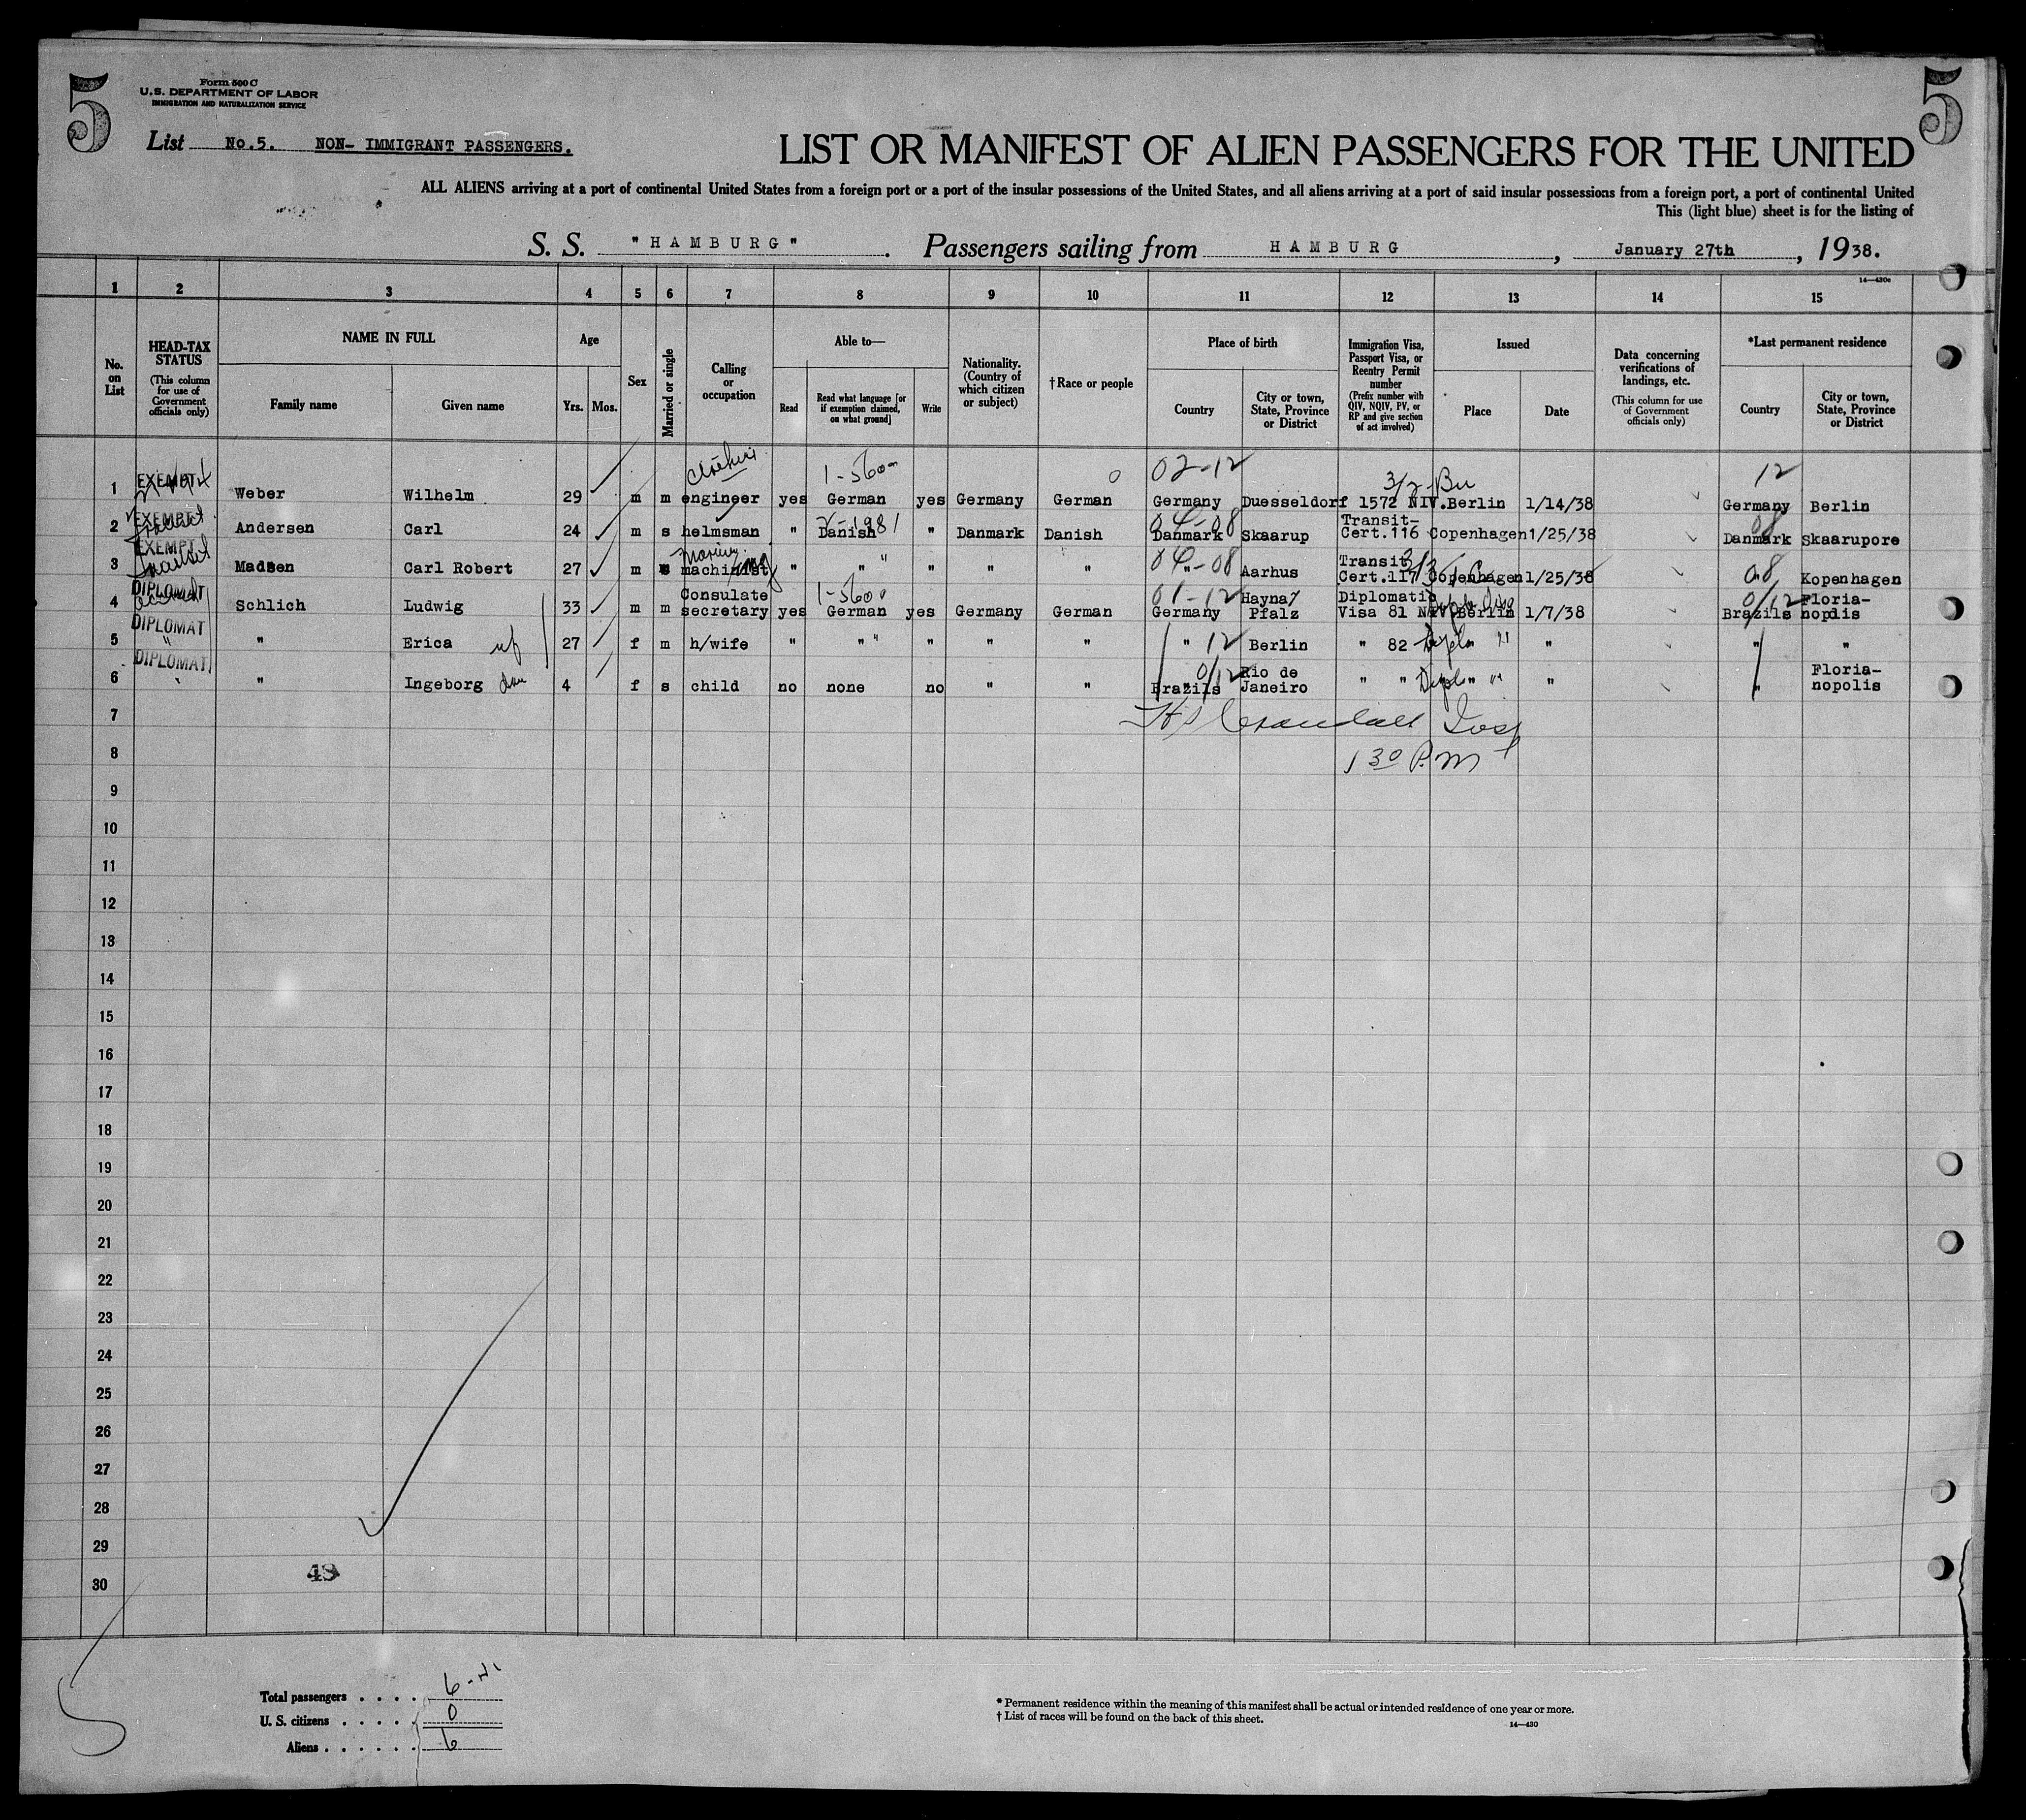 5
5
Form 500 C
U.S. DEPARTMENT OF LABOR
IMMIGRATION AND NATURALIZATION SERVICE
List No.5. NON- IMMIGRANT PASSENGERS.
LIST OR MANIFEST OF ALIEN PASSENGERS FOR THE UNITED
ALL ALIENS arriving at a port of continental United States from a foreign port or a port of the insular possessions of the United States, and all aliens arriving at a port of said insular possessions from a foreign port, a port of continental United
This (light blue) sheet is for the listing of
S. S. "HAMBURG". Passengers sailing from HAMBURG, January 27th, 1938.
14—430c
1 2 3 4 5 6 7 8 9 10 11 12 13 14 15
No. on List
HEAD-TAX STATUS (This column for use of Government officials only)
NAME IN FULL
Family name
Given name
Age
Yrs.
Mos.
Sex
Married or single
Calling or occupation
Able to—
Read
Read what language [or if exemption claimed, on what ground]
Write
Nationality. (Country of which citizen or subject)
†Race or people
Place of birth
Country
City or town, State, Province or District
Immigration Visa, Passport Visa, or Reentry Permit number (Prefix number with QIV, NQIV, PV, or RP and give section of act involved)
Issued
Place
Date
Data concerning verifications of landings, etc. (This column for use of Government officials only)
*Last permanent residence
Country
City or town, State, Province or District
1-5600 02-12 12
1 EXEMPT Weber Wilhelm 29 m m engineer yes German yes Germany German Germany Duesseldorf 1572 NIV. Berlin 1/14/38 Germany Berlin
2 EXEMPT Andersen Carl 24 m s helmsman " Danish " Danmark Danish Danmark Skaarup Transit- Cert.116 Copenhagen 1/25/38 Danmark Skaarupore
3 EXEMPT Madsen Carl Robert 27 m machinist " " " " " " Aarhus Transit Cert.117 Copenhagen 1/25/38 " Kopenhagen
4 DIPLOMAT Schlich Ludwig 33 m m Consulate secretary yes German yes Germany German Germany Hayna/ Pfalz Diplomatic Visa 81 NIV Berlin 1/7/38 Brazils Floria- nopolis
5 DIPLOMAT " Erica wf 27 f m h/wife " " " " " " 12 Berlin " 82 " " " "
6 DIPLOMAT " Ingeborg dau 4 f s child no none no " " Brazils Rio de Janeiro " " " " " Floria- nopolis
7
8 1 30 P.M
9
10
11
12
13
14
15
16
17
18
19
20
21
22
23
24
25
26
27
28
29
30
Total passengers . . . . 6
U. S. citizens . . . . . 0
Aliens . . . . . . 6
* Permanent residence within the meaning of this manifest shall be actual or intended residence of one year or more.
† List of races will be found on the back of this sheet.
14—430